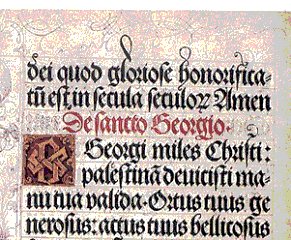 dei quod gloriose honorifica-
tū est, in secula seculoꝝ Amen
De sancto Georgio.
Georgi miles Christi:
palestinā deuicisti ma-
nu tua valida. Ortus tuus ge
nerosus: actus tuus bellicosus